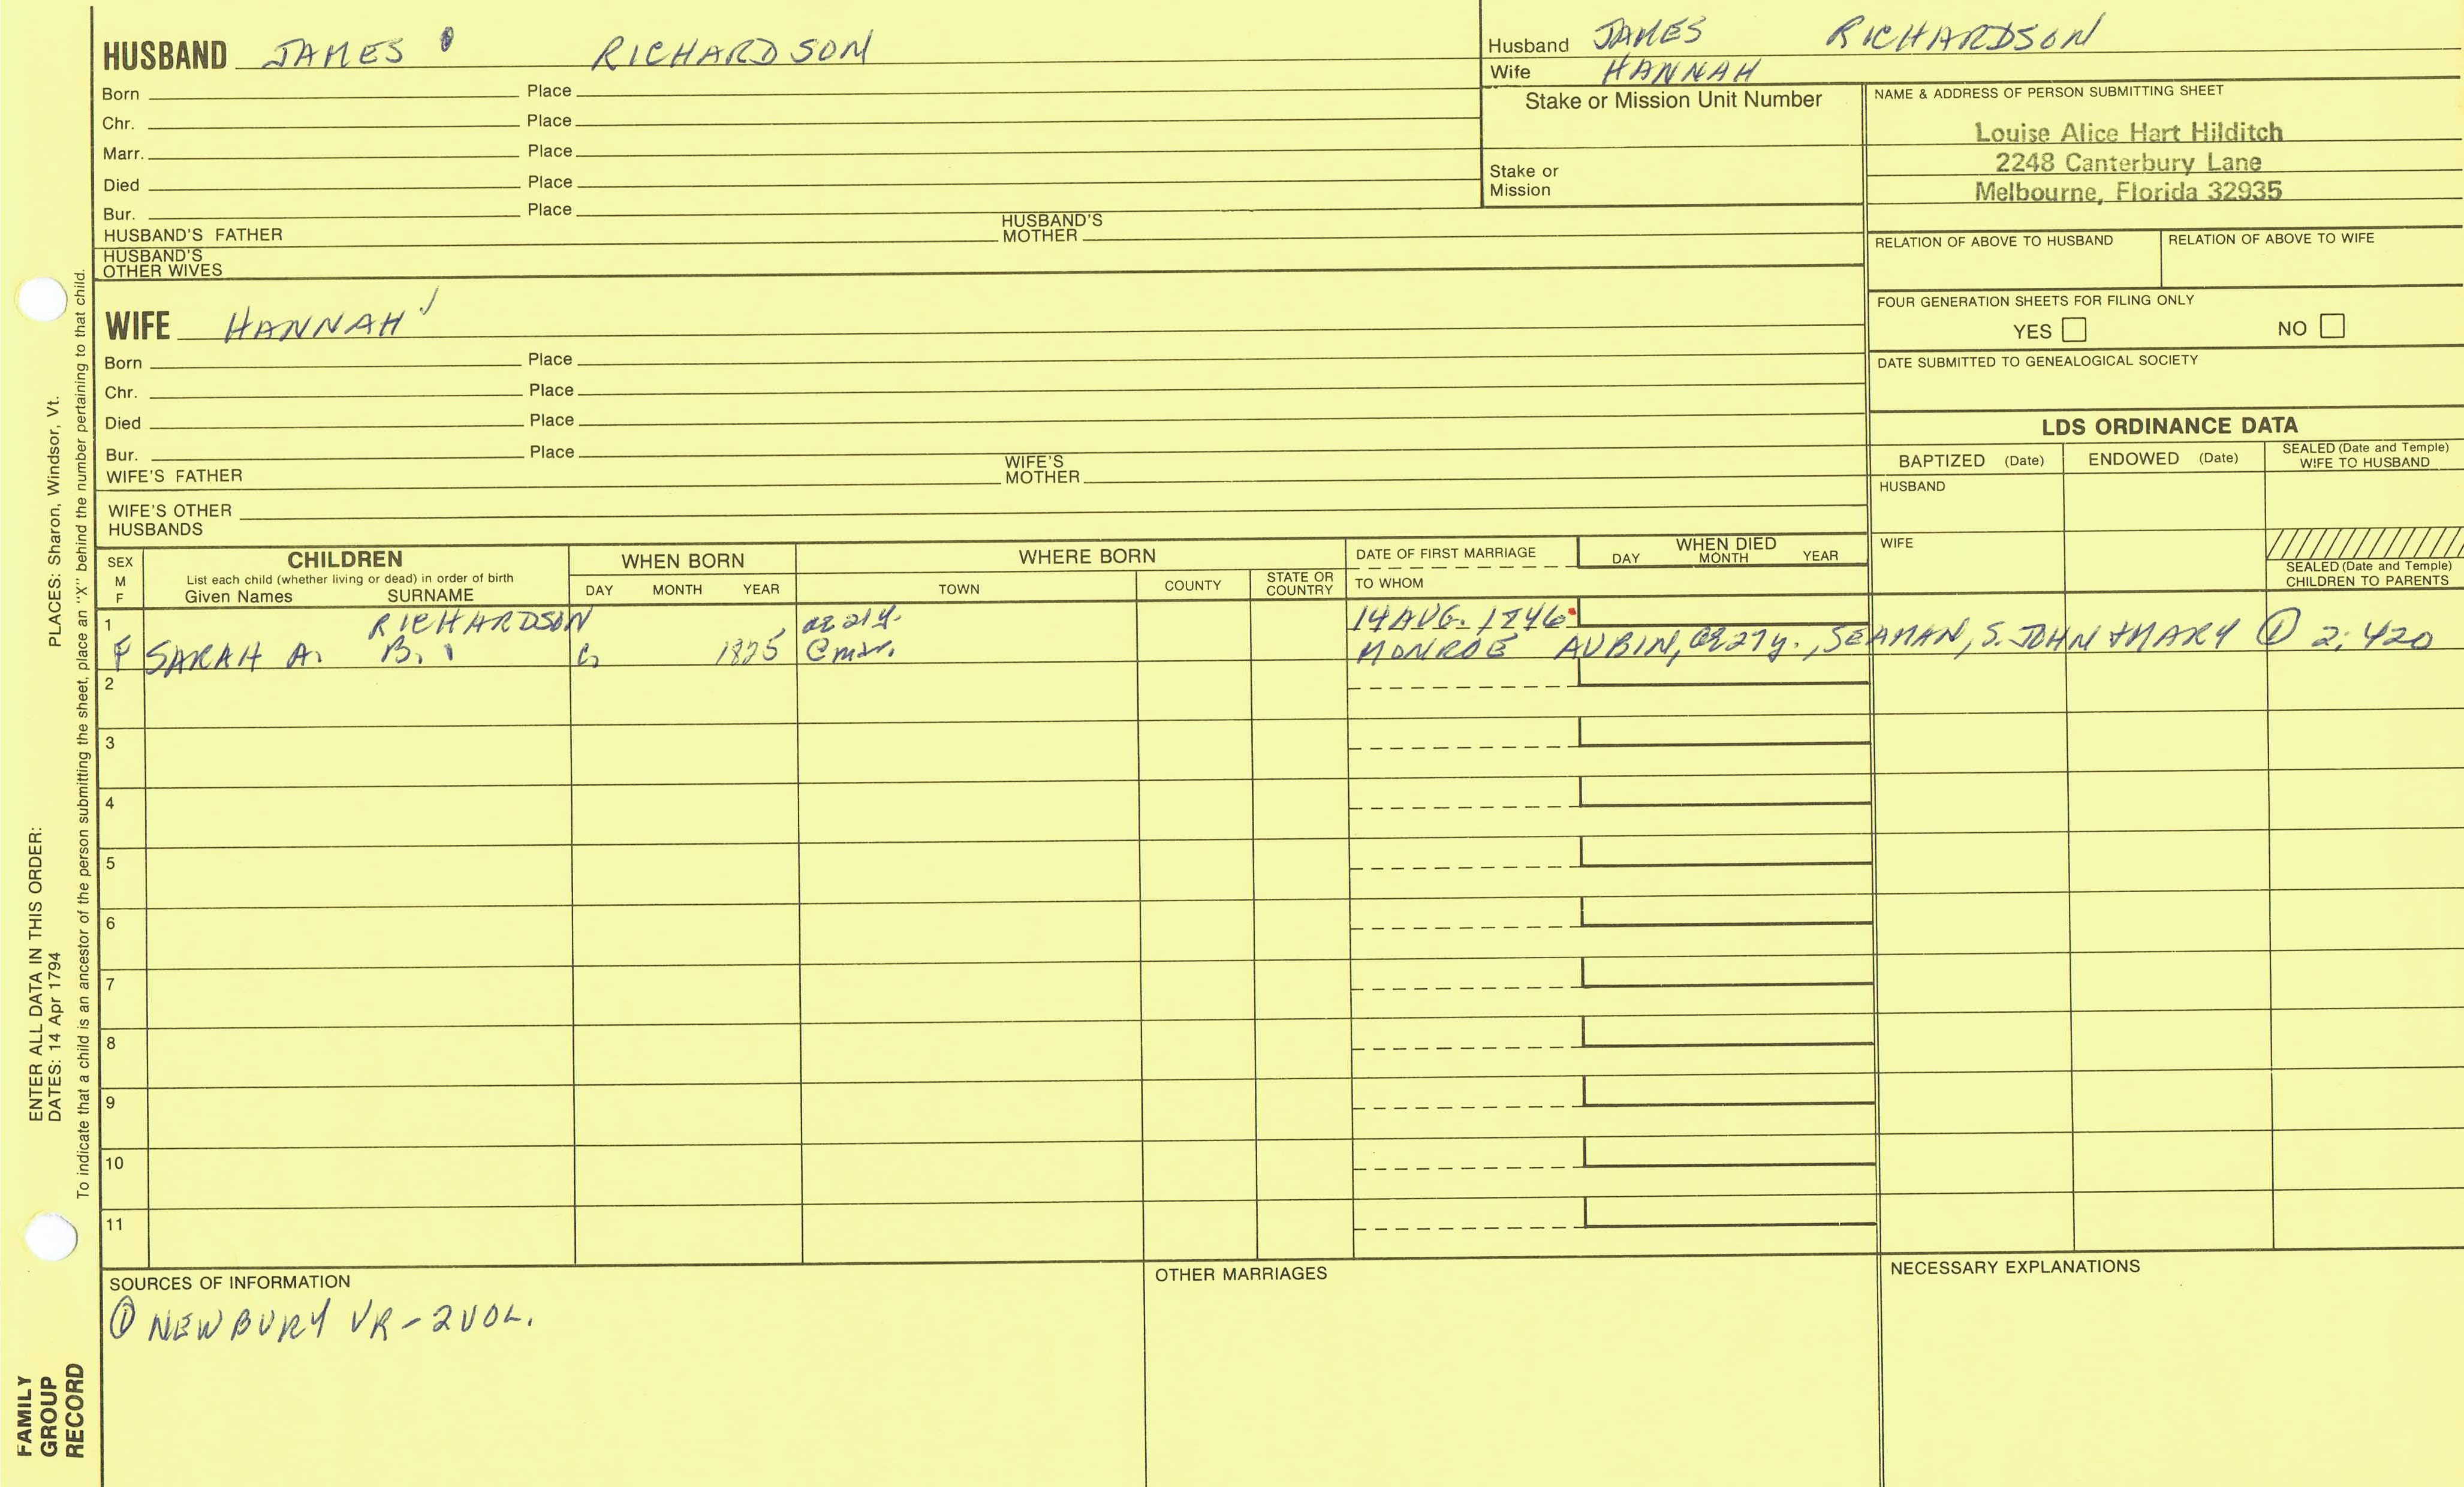 HUSBAND JAMES RICHARDSON
Born Place
Chr. Place
Marr. Place
Died Place
Bur. Place
HUSBAND'S FATHER HUSBAND'S MOTHER
HUSBAND'S OTHER WIVES
WIFE HANNAH
Born Place
Chr. Place
Died Place
Bur. Place
WIFE'S FATHER WIFE'S MOTHER
WIFE'S OTHER HUSBANDS
Husband JAMES RICHARDSON
Wife HANNAH
Stake or Mission Unit Number
Stake or
Mission
NAME & ADDRESS OF PERSON SUBMITTING SHEET
Louise Alice Hart Hilditch
2248 Canterbury Lane
Melbourne, Florida 32935
RELATION OF ABOVE TO HUSBAND RELATION OF ABOVE TO WIFE
FOUR GENERATION SHEETS FOR FILING ONLY
YES NO
DATE SUBMITTED TO GENEALOGICAL SOCIETY
LDS ORDINANCE DATA
BAPTIZED (Date) ENDOWED (Date) SEALED (Date and Temple) WIFE TO HUSBAND
HUSBAND
WIFE
SEALED (Date and Temple) CHILDREN TO PARENTS
SEX M F
CHILDREN
List each child (whether living or dead) in order of birth
Given Names SURNAME
WHEN BORN
DAY MONTH YEAR
WHERE BORN
TOWN COUNTY STATE OR COUNTRY
DATE OF FIRST MARRIAGE
TO WHOM
WHEN DIED
DAY MONTH YEAR
1 RICHARDSON 14 AUG. 1846
F SARAH A. B. 1825 MONROE AUBIN, 27y., SEAMAN, S. JOHN + MARY ① 2:420
2
3
4
5
6
7
8
9
10
11
SOURCES OF INFORMATION
① NEWBURY VR - 2 VOL.
OTHER MARRIAGES
NECESSARY EXPLANATIONS
PLACES: Sharon, Windsor, Vt.
ENTER ALL DATA IN THIS ORDER:
DATES: 14 Apr 1794
To indicate that a child is an ancestor of the person submitting the sheet, place an "X" behind the number pertaining to that child.
FAMILY
GROUP
RECORD